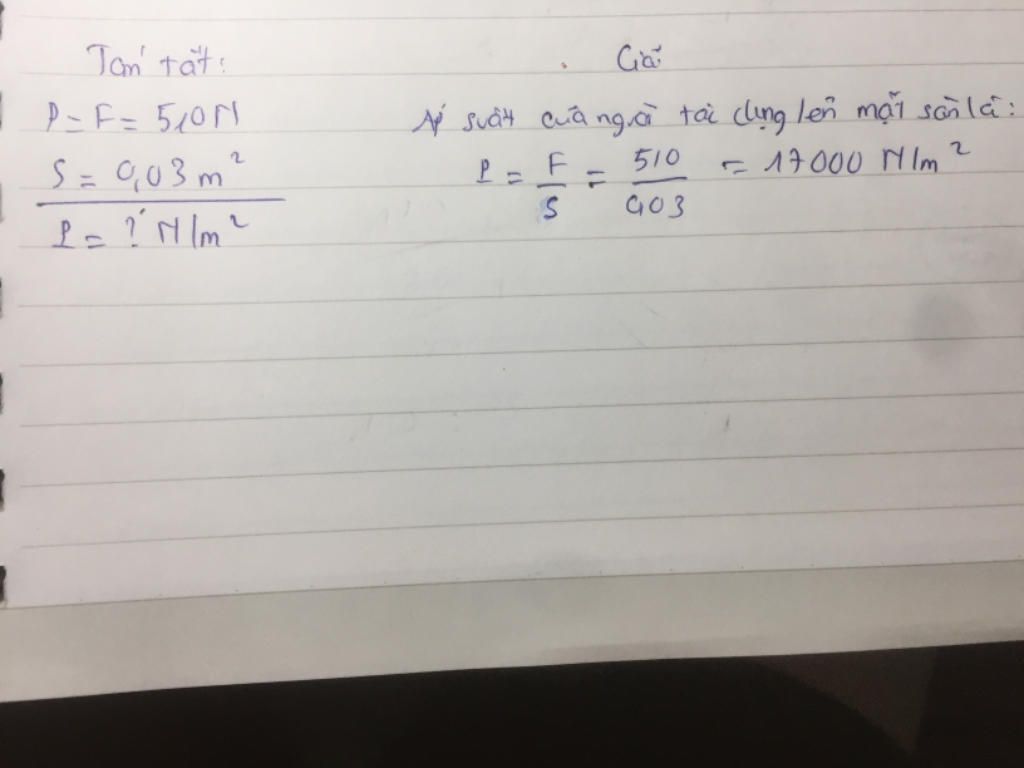 Tóm tắt:
P = F = 510 N
S = 0,03 m²
P = ? N/m²
Giải
Áp suất của người tác dụng lên mặt sàn là:
P = F/S = 510/0,03 = 17000 N/m²